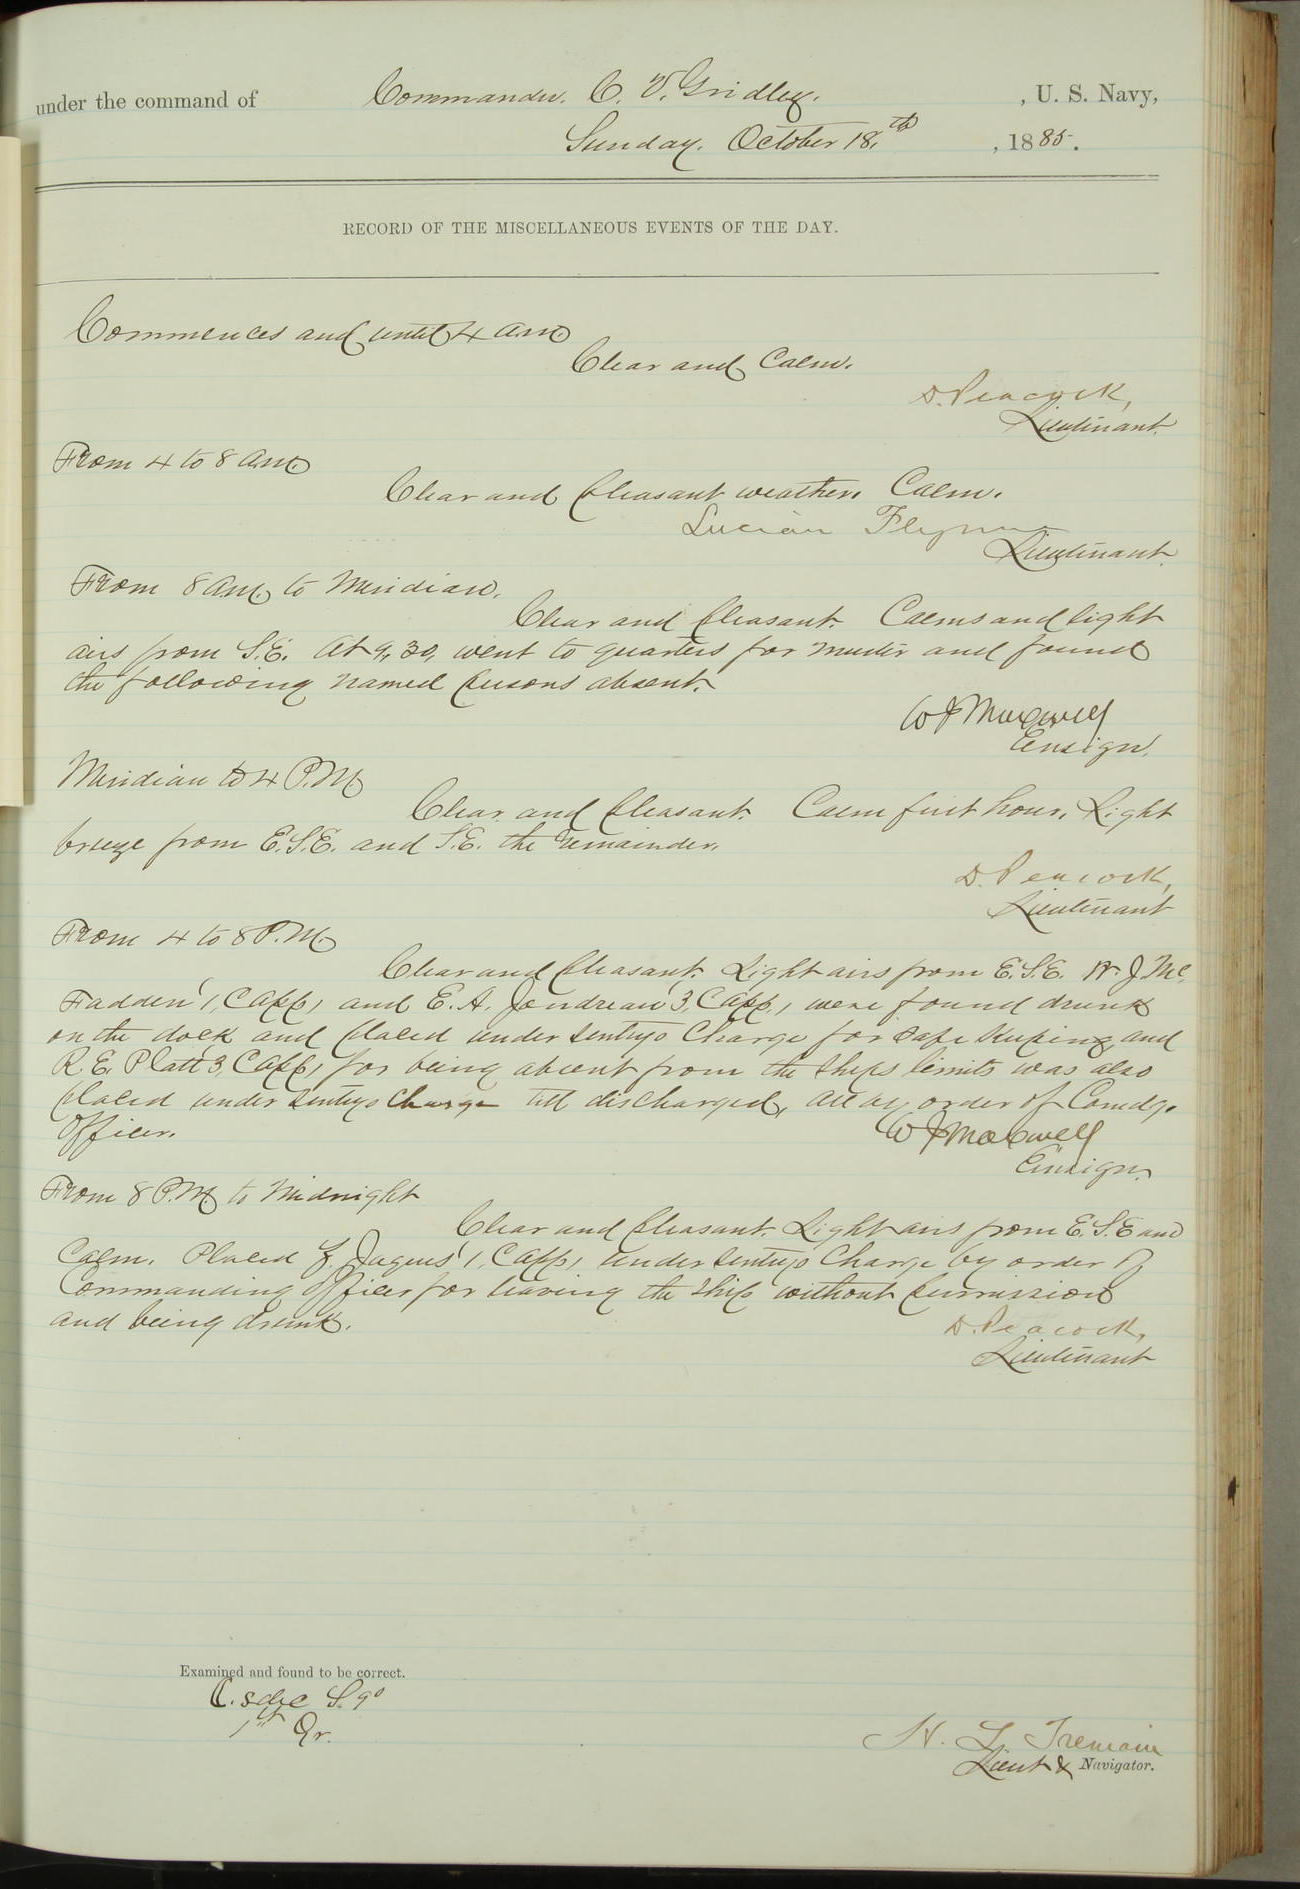 under the command of Commander. C. V. Gridley. , U. S. Navy,
Sunday. October 18.th , 1885.
RECORD OF THE MISCELLANEOUS EVENTS OF THE DAY.
Commences and until 4 a.m.
Clear and Calm.
D. Peacock,
Lieutenant.
From 4 to 8 a.m.
Clear and pleasant weather. Calm.
Lucian Flynne
Lieutenant.
From 8 a.m. to Meridian.
Clear and pleasant. Calms and light
airs from S.E. At 9,30, went to quarters for muster and found
the following named persons absent.
W J Maxwell
Ensign.
Meridian to 4 P.M.
Clear and pleasant. Calm first hour. Light
breeze from E.S.E. and S.E. the remainder.
D. Peacock,
Lieutenant
From 4 to 8 P.M.
Clear and pleasant. Light airs from E.S.E. W. J. Mc
Fadden 1, C App, and E. A. Jendreau 3, C App, were found drunk
on the dock and placed under sentrys charge for safe keeping, and
R. E. Platt 3, C App, for being absent from the ships limits was also
placed under sentrys Charge till discharged, all by order of Comdg.
Officer.
W J Maxwell
Ensign.
From 8 P.M. to Midnight
Clear and pleasant. Light airs from E.S.E and
Calm. Placed F. Jaques 1, C App, under sentrys Charge by order of
Commanding Officer for leaving the ship without permission
and being drunk.
D. Peacock,
Lieutenant
Examined and found to be correct.
1st Qr.
H. L. Tremain
Lieut & Navigator.